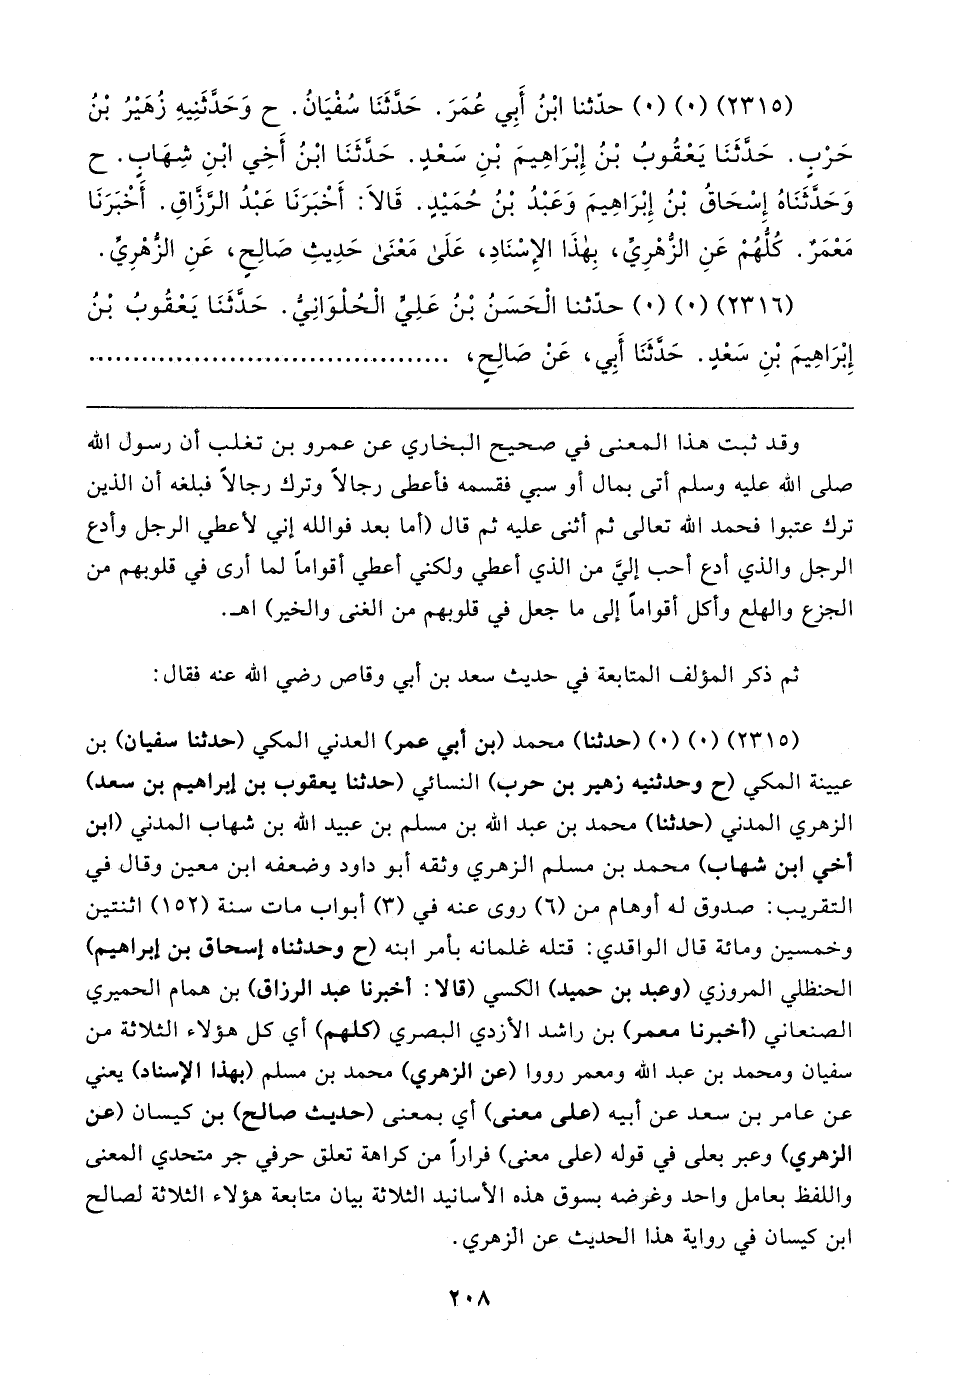 (٢٣١٥) (٠) (٠) حدّثنا ابْنُ أَبِي عُمَرَ. حَدَّثَنَا سُفْيَانُ. ح وَحَدَّثَنِيهِ زُهَيْرُ بْنُ
حَرْبٍ. حَدَّثَنَا يَعْقُوبُ بْنُ إِبْرَاهِيمَ بْنِ سَعْدٍ. حَدَّثَنَا ابْنُ أَخِي ابْنِ شِهَابٍ. ح
وَحَدَّثَنَاهُ إِسْحَاقُ بْنُ إِبْرَاهِيمَ وَعَبْدُ بْنُ حُمَيْدٍ. قَالاَ: أَخْبَرَنَا عَبْدُ الرَّزَّاقِ. أَخْبَرَنَا
مَعْمَرٌ. كُلُّهُمْ عَنِ الزُّهْرِيِّ، بِهَٰذَا الإِسْنَادِ، عَلَىٰ مَعْنَىٰ حَدِيثِ صَالِحٍ، عَنِ الزُّهْرِيِّ.
(٢٣١٦) (٠) (٠) حدّثنا الْحَسَنُ بْنُ عَلِيٍّ الْحُلْوَانِيُّ. حَدَّثَنَا يَعْقُوبُ بْنُ
إِبْرَاهِيمَ بْنِ سَعْدٍ. حَدَّثَنَا أَبِي، عَنْ صَالِحٍ، ........................................
وقد ثبت هذا المعنى في صحيح البخاري عن عمرو بن تغلب أن رسول الله
صلى الله عليه وسلم أتى بمال أو سبي فقسمه فأعطى رجالاً وترك رجالاً فبلغه أن الذين
ترك عتبوا فحمد الله تعالى ثم أثنى عليه ثم قال (أما بعد فوالله إني لأعطي الرجل وأدع
الرجل والذي أدع أحب إليَّ من الذي أعطي ولكني أعطي أقواماً لما أرى في قلوبهم من
الجزع والهلع وأكل أقواماً إلى ما جعل في قلوبهم من الغنى والخير) اهـ.
ثم ذكر المؤلف المتابعة في حديث سعد بن أبي وقاص رضي الله عنه فقال:
(٢٣١٥) (٠) (٠) (حدثنا) محمد (بن أبي عمر) العدني المكي (حدثنا سفيان) بن
عيينة المكي (ح وحدثنيه زهير بن حرب) النسائي (حدثنا يعقوب بن إبراهيم بن سعد)
الزهري المدني (حدثنا) محمد بن عبد الله بن مسلم بن عبيد الله بن شهاب المدني (ابن
أخي ابن شهاب) محمد بن مسلم الزهري وثقه أبو داود وضعفه ابن معين وقال في
التقريب: صدوق له أوهام من (٦) روى عنه في (٣) أبواب مات سنة (١٥٢) اثنتين
وخمسين ومائة قال الواقدي: قتله غلمانه بأمر ابنه (ح وحدثناه إسحاق بن إبراهيم)
الحنظلي المروزي (وعبد بن حميد) الكسي (قالا: أخبرنا عبد الرزاق) بن همام الحميري
الصنعاني (أخبرنا معمر) بن راشد الأزدي البصري (كلهم) أي كل هؤلاء الثلاثة من
سفيان ومحمد بن عبد الله ومعمر رووا (عن الزهري) محمد بن مسلم (بهذا الإسناد) يعني
عن عامر بن سعد عن أبيه (على معنى) أي بمعنى (حديث صالح) بن كيسان (عن
الزهري) وعبر بعلى في قوله (على معنى) فراراً من كراهة تعلق حرفي جر متحدي المعنى
واللفظ بعامل واحد وغرضه بسوق هذه الأسانيد الثلاثة بيان متابعة هؤلاء الثلاثة لصالح
ابن كيسان في رواية هذا الحديث عن الزهري.
٢٠٨